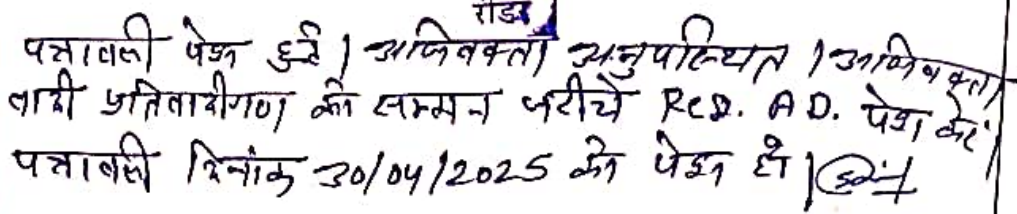 रीडर
पत्रावली पेश हुई। अधिवक्ता अनुपस्थित। अधिवक्ता
वादी प्रतिवादीगण को सम्मन जरीये Reg. A D. पेश करें।
पत्रावली दिनांक 30/04/2025 को पेश हो।